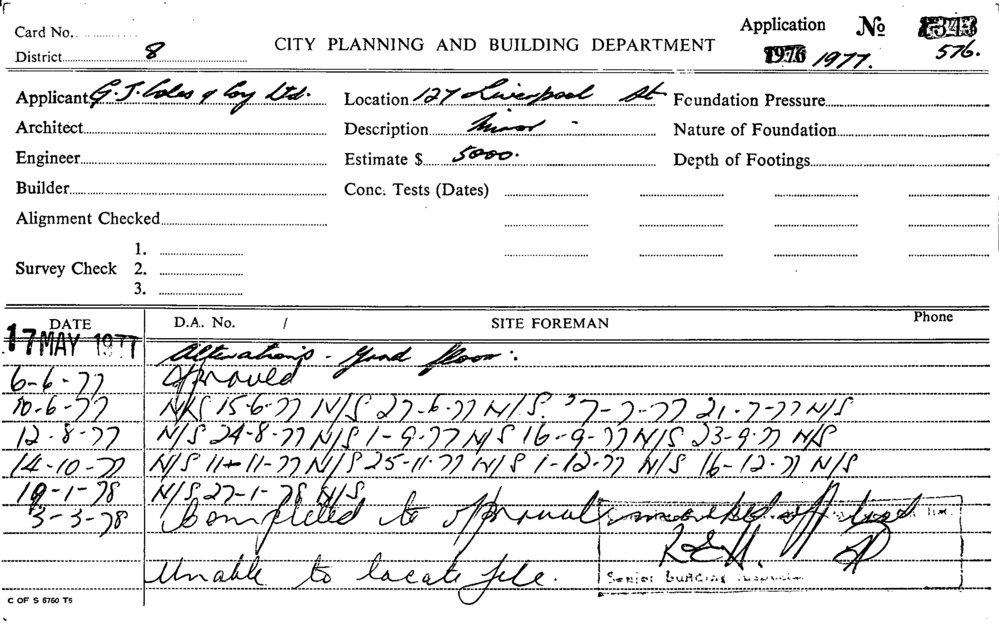 Card No.
Application No
District 8
CITY PLANNING AND BUILDING DEPARTMENT
1976 1977. 576.
Applicant G. J. Coles & Coy Ltd. Location 127 Liverpool St Foundation Pressure
Architect Description Minor - Nature of Foundation
Engineer Estimate $ 5000. Depth of Footings
Builder Conc. Tests (Dates)
Alignment Checked
1.
Survey Check 2.
3.
DATE D.A. No. / SITE FOREMAN Phone
17 MAY 1977 Alterations - Grnd floor.
6-6-77 Approved
10-6-77 N/S 15-6-77 N/S 27-6-77 N/S. 7-7-77 21-7-77 N/S
12-8-77 N/S 24-8-77 N/S 1-9-77 N/S 16-9-77 N/S 23-9-77 N/S
14-10-77 N/S 11-11-77 N/S 25-11-77 N/S 1-12-77 N/S 16-12-77 N/S
19-1-78 N/S 27-1-78 N/S
3-3-78 Completed to approval marked off
Unable to locate file.
Senior Building Inspector
C OF S 5760 T5